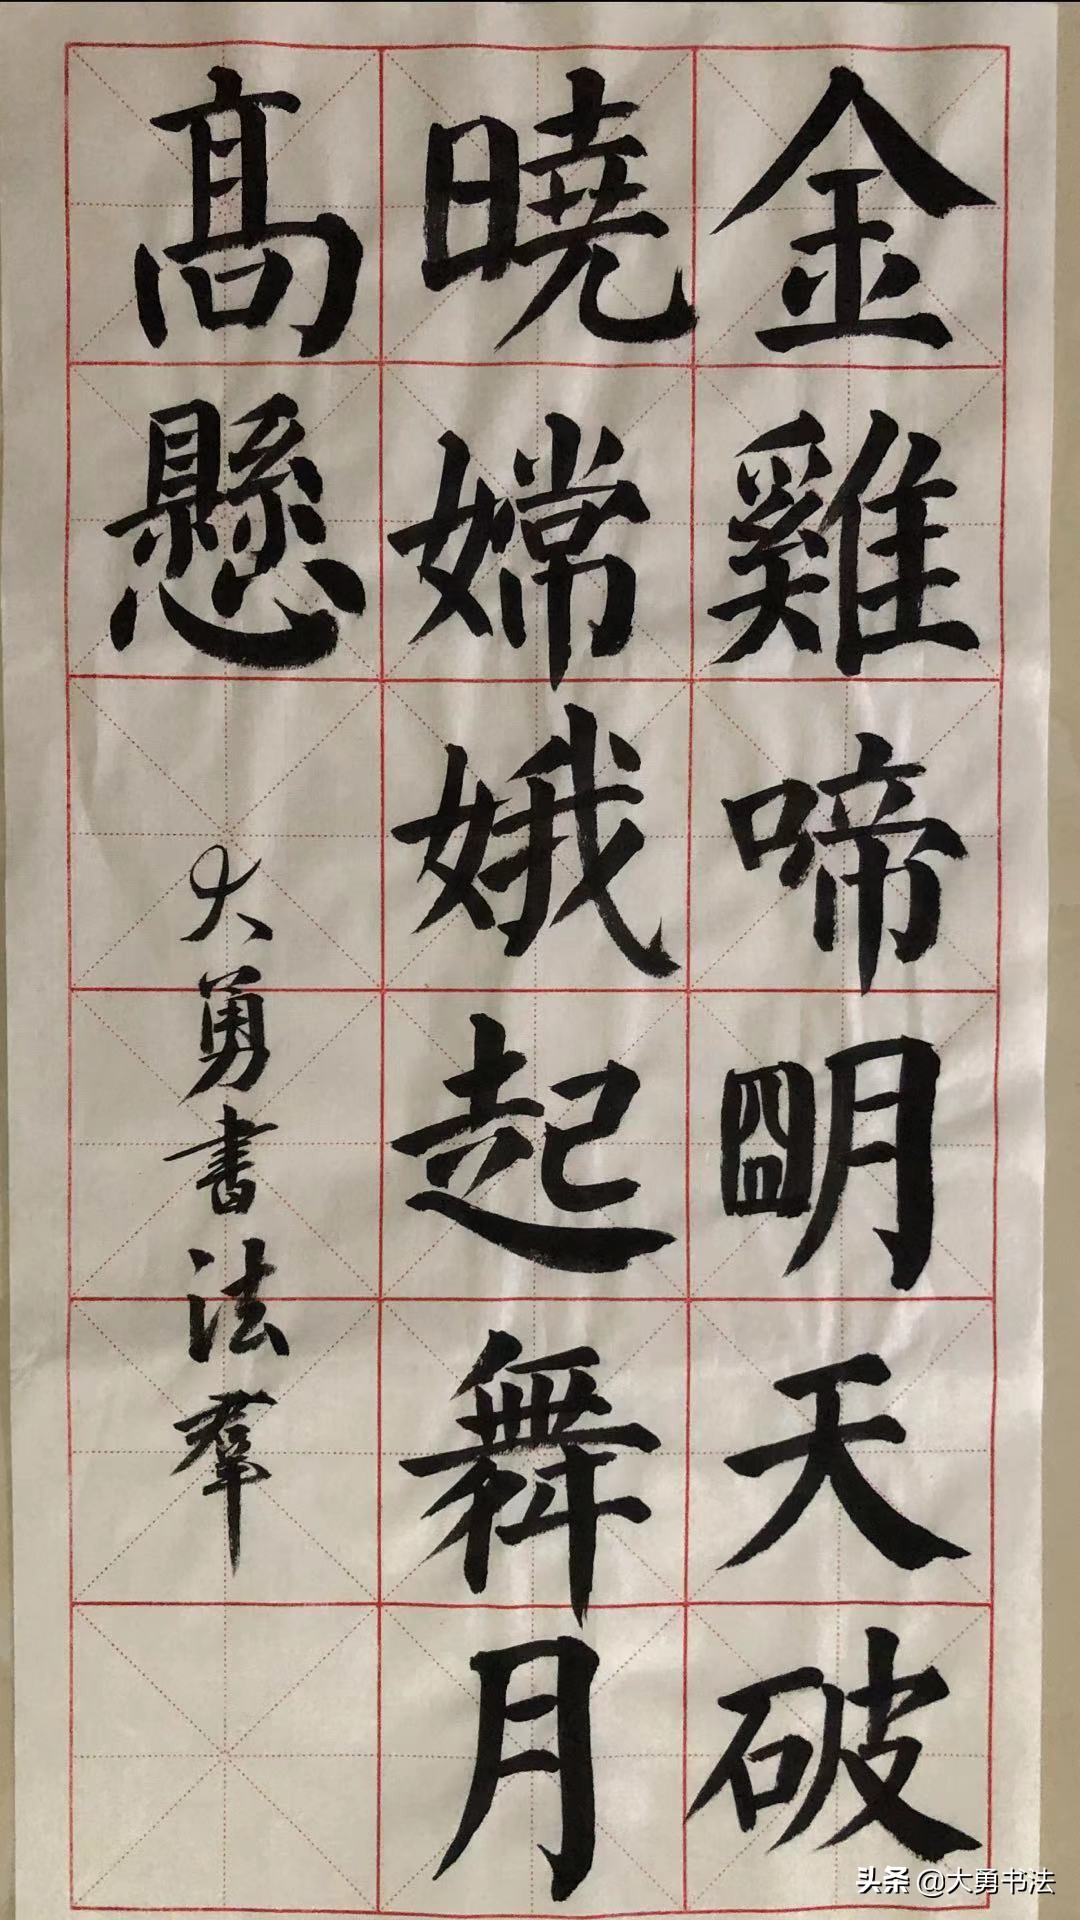 金雞啼明天破
曉嫦娥起舞月
高懸
大勇書法羣
头条 @大勇书法